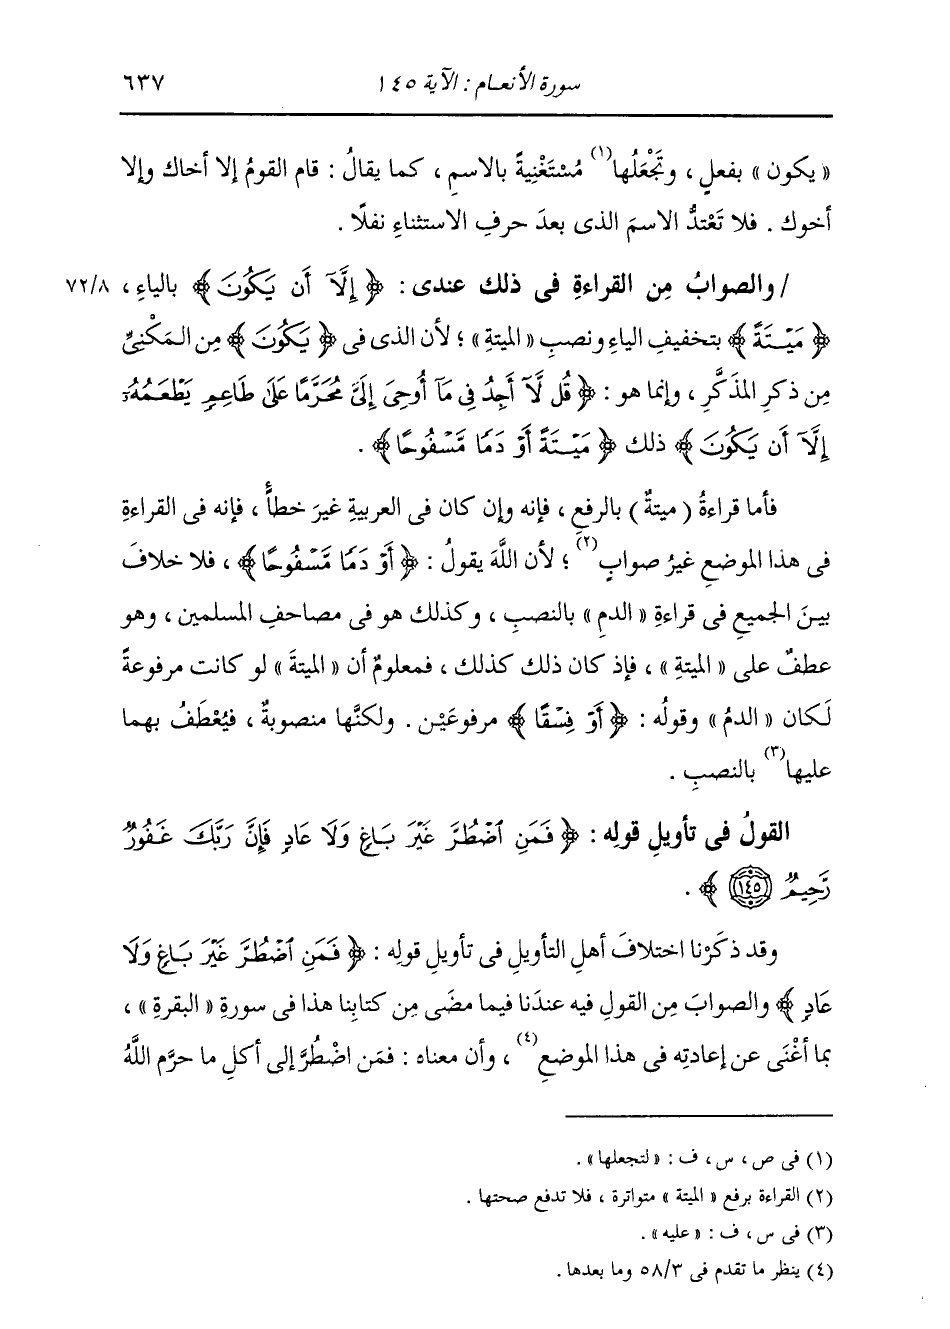 سورة الأنعام : الآية ١٤٥ ٦٣٧
« يكون » بفعلٍ ، وتَجْعَلُها(١) مُسْتَغْنِيةً بالاسمِ ، كما يقالُ : قام القومُ إلا أخاك وإلا
أخوك . فلا تَعْتدُّ الاسمَ الذى بعدَ حرفِ الاستثناءِ نفلًا .
/ والصوابُ مِن القراءةِ فى ذلك عندى : ﴿ إِلَّآ أَن يَكُونَ ﴾ بالياءِ ، ٧٢/٨
﴿ مَيْتَةً ﴾ بتخفيفِ الياءِ ونصبِ « الميتةِ » ؛ لأن الذى فى ﴿ يَكُونَ ﴾ مِن المَكْنِيِّ
مِن ذكرِ المذكَّرِ ، وإنما هو : ﴿ قُل لَّآ أَجِدُ فِى مَآ أُوحِىَ إِلَىَّ مُحَرَّمًا عَلَىٰ طَاعِمٍ يَطْعَمُهُۥٓ
إِلَّآ أَن يَكُونَ ﴾ ذلك ﴿ مَيْتَةً أَوْ دَمًا مَّسْفُوحًا ﴾ .
فأما قراءةُ ( ميتةٌ ) بالرفعِ ، فإنه وإن كان فى العربيةِ غيرَ خطأً ، فإنه فى القراءةِ
فى هذا الموضعِ غيرُ صوابٍ(٢) ؛ لأن اللَّهَ يقولُ : ﴿ أَوْ دَمًا مَّسْفُوحًا ﴾ ، فلا خلافَ
بينَ الجميعِ فى قراءةِ « الدمِ » بالنصبِ ، وكذلك هو فى مصاحفِ المسلمين ، وهو
عطفٌ على « الميتةِ » ، فإذ كان ذلك كذلك ، فمعلومٌ أن « الميتةَ » لو كانت مرفوعةً
لَكان « الدمُ » وقولُه : ﴿ أَوْ فِسْقًا ﴾ مرفوعَيْن . ولكنَّها منصوبةٌ ، فيُعْطَفُ بهما
عليها(٣) بالنصبِ .
القولُ فى تأويلِ قولِه : ﴿ فَمَنِ ٱضْطُرَّ غَيْرَ بَاغٍ وَلَا عَادٍ فَإِنَّ رَبَّكَ غَفُورٌ
رَّحِيمٌ ١٤٥ ﴾ .
وقد ذكَرْنا اختلافَ أهلِ التأويلِ فى تأويلِ قولِه : ﴿ فَمَنِ ٱضْطُرَّ غَيْرَ بَاغٍ وَلَا
عَادٍ ﴾ والصوابَ مِن القولِ فيه عندَنا فيما مضَى مِن كتابِنا هذا فى سورةِ « البقرةِ » ،
بما أغْنَى عن إعادتِه فى هذا الموضعِ(٤) ، وأن معناه : فمَن اضْطُرَّ إلى أكلِ ما حرَّم اللَّهُ
(١) فى ص ، س ، ف : « لتجعلها » .
(٢) القراءة برفع « الميتة » متواترة ، فلا تدفع صحتها .
(٣) فى س ، ف : « عليه » .
(٤) ينظر ما تقدم فى ٥٨/٣ وما بعدها .